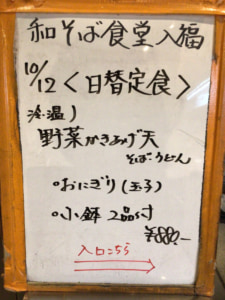 和そば食堂入福
10/12〈日替定食〉
冷・温)
野菜かきあげ天
そば・うどん
○おにぎり(玉子)
○小鉢 2品付
¥880-
入口こちら